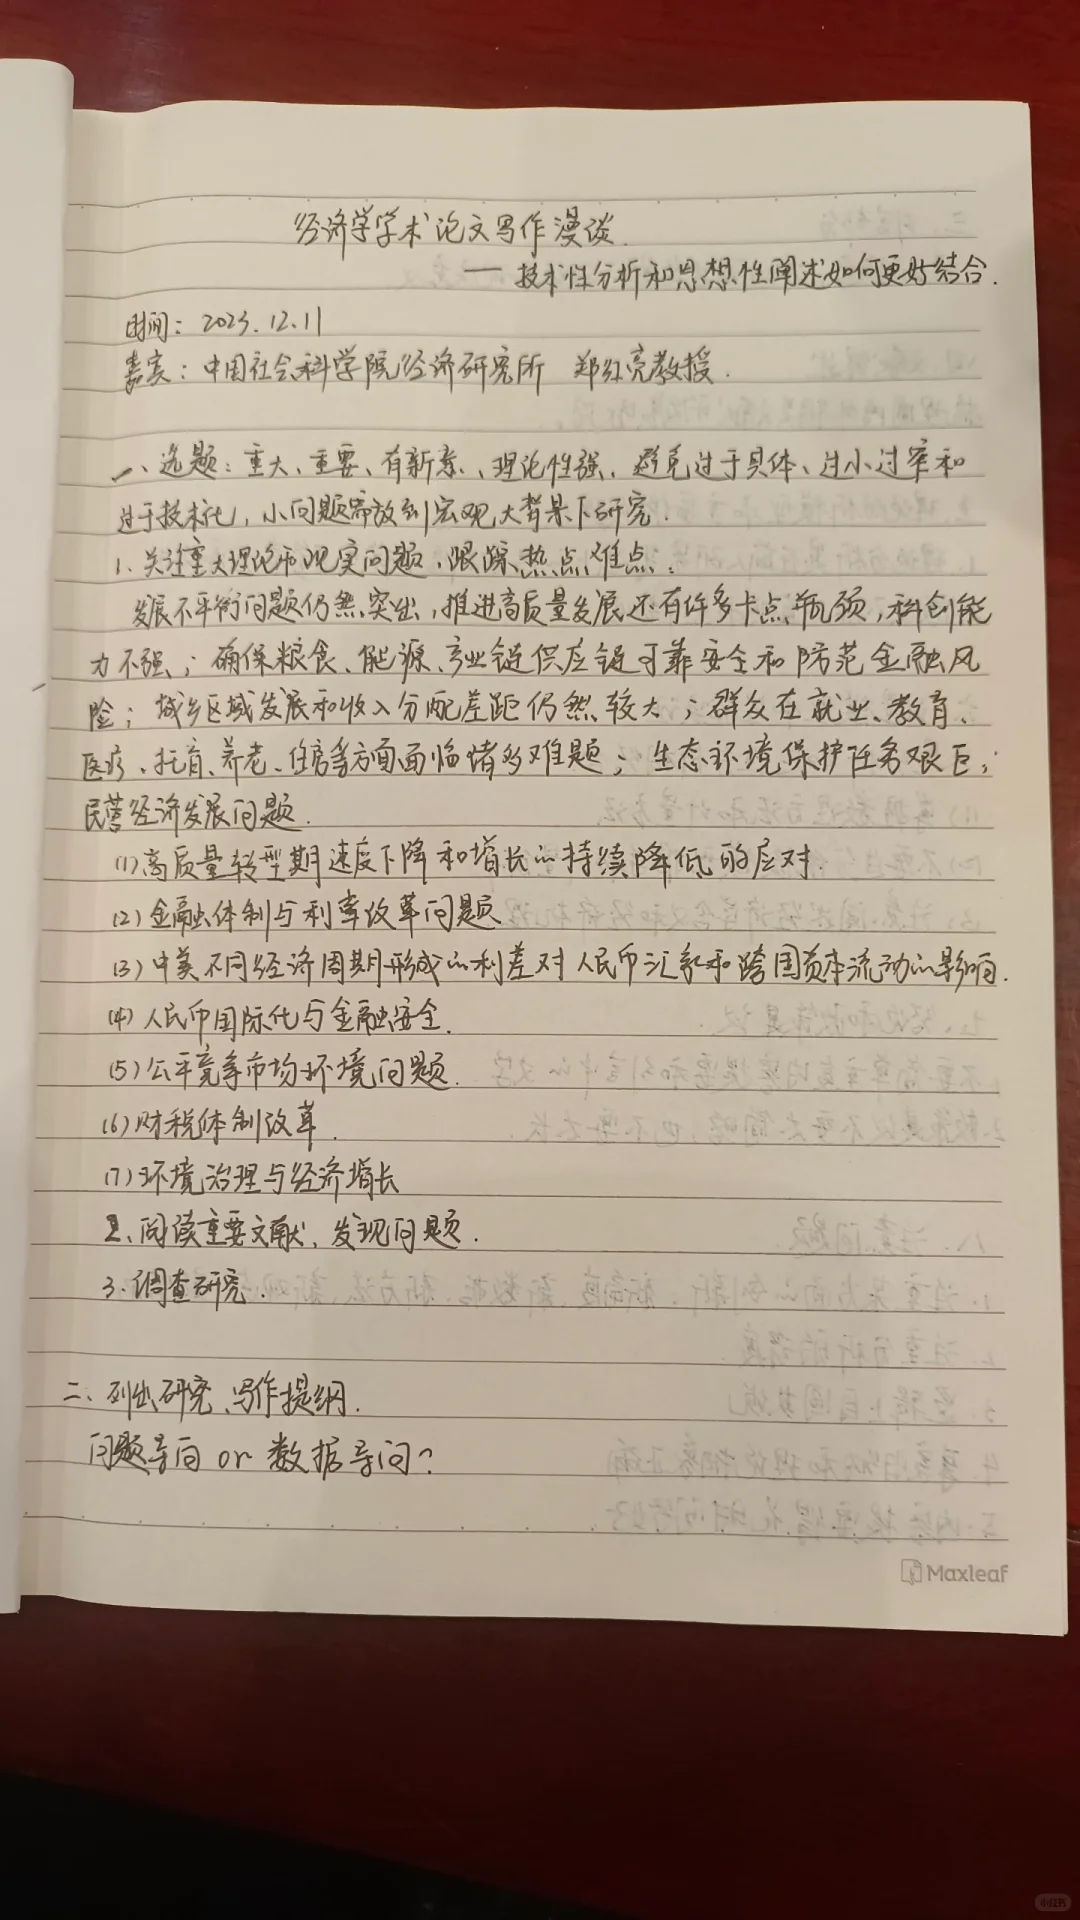 经济学学术论文写作漫谈.
——技术性分析和思想性阐述如何更好结合.
时间：2023.12.11
嘉宾：中国社会科学院经济研究所 郑红亮教授.
一、选题：重大、重要、有新意、理论性强，避免过于具体、过小过窄和
过于技术化，小问题需放到宏观大背景下研究.
1.关注重大理论和现实问题，跟踪热点、难点.
发展不平衡问题仍然突出，推进高质量发展还有许多卡点瓶颈，科创能
力不强；确保粮食、能源、产业链供应链可靠安全和防范金融风
险；城乡区域发展和收入分配差距仍然较大；群众在就业、教育、
医疗、托育、养老、住房等方面面临诸多难题；生态环境保护任务艰巨；
民营经济发展问题.
(1)高质量转型期速度下降和增长的持续降低的应对.
(2)金融体制与利率改革问题
(3)中美不同经济周期形成的利差对人民币汇率和跨国资本流动的影响.
(4)人民币国际化与金融安全.
(5)公平竞争市场环境问题.
(6)财税体制改革.
(7)环境治理与经济增长
2、阅读重要文献、发现问题.
3.调查研究.
二、列出研究、写作提纲.
问题导向 or 数据导向？
Maxleaf